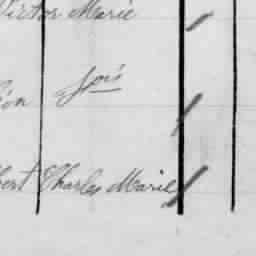 Victor Marie
éon
bert Charles Marie